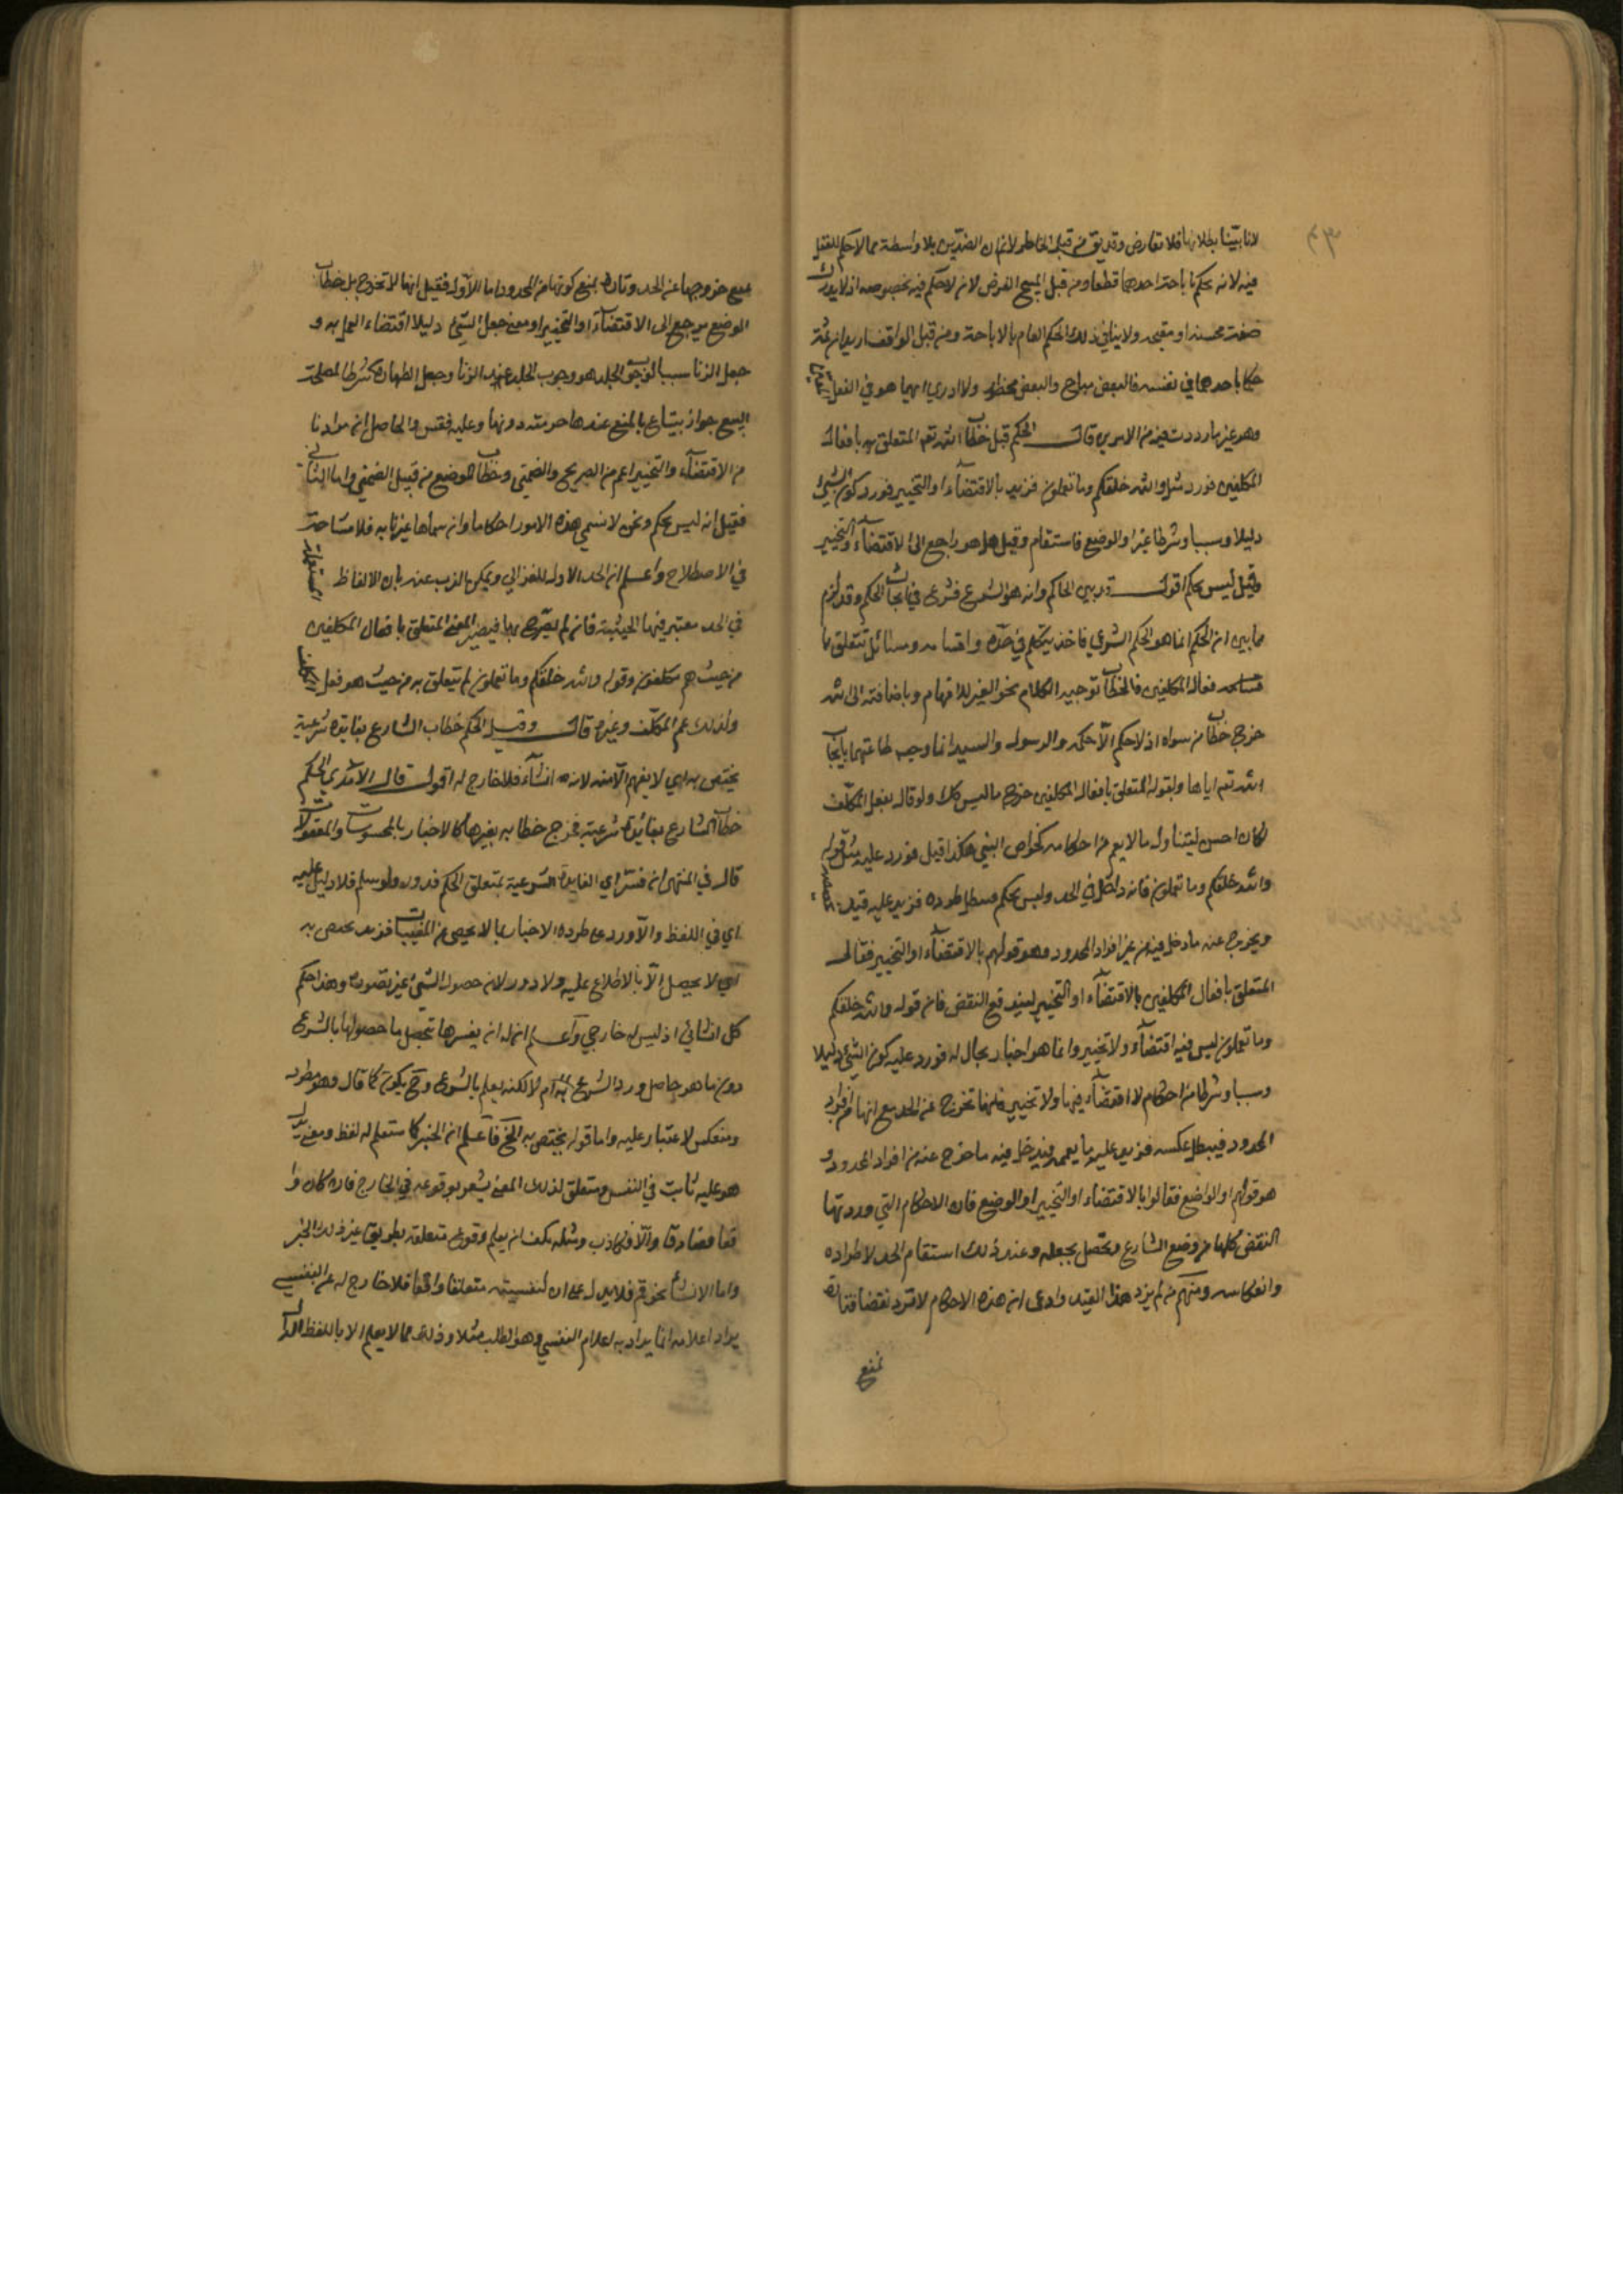 لانا بينا بطلانها فلا تعارض وقد يق من قبل الحاظر لانهما من الضدين بلا واسطة مما لا حكم للعقل
فيه لانه يحكم باباحة احدهما قطعا ومن قبل المبيح الفرض لانه لا حكم فيه بخصوصه اذ لا يدرك
صفة محسنة او مقبحة ولا ينافي ذلك الحكم العام بالاباحة ومن قبل الواقف اريد ان ثمة
حكما باحدهما في نفسه فالبعض مباح والبعض محظور ولا ادري ايهما هو في الفعل المعين
وهو غير ما رددت فيه من الامرين قال الحكم قيل خطاب الله تعم المتعلق بافعال
المكلفين فورد مثل والله خلقكم وما تعملون فزيد بالاقتضاء او التخيير فورد كون الشيء
دليلا وسببا وشرطا فزيد او الوضع فاستقام وقيل بل هو راجع الى الاقتضاء والتخيير
وقيل ليس بحكم اقول قد بين الحاكم وانه هو الشرع فشرع في ابحاث الحكم وقد لزم
مما بين ان الحكم انما هو الحكم الشرعي فاخذ يتكلم في حده واقسامه ومسائل تتعلق بها
افعال المكلفين فالخطاب توجيه الكلام نحو الغير للافهام وباضافته الى الله
خرج خطاب من سواه اذ لا حكم الا حكمه والرسول والسيد انما وجب طاعتهما بايجاب
الله تعم اياها وبقوله المتعلق بافعال المكلفين خرج ما ليس كك ولو قال بفعل المكلف
لكان احسن ليتناول ما لا يعم من احكامه كخواص النبي هكذا قيل فورد عليه مثل قوله
والله خلقكم وما تعملون فانه داخل في الحد وليس بحكم فبطل طرده فزيد عليه قيد يخصصه
ويخرج عنه ما دخل فيه من غير افراد المحدود وهو قولهم بالاقتضاء او التخيير فقالوا
المتعلق بافعال المكلفين بالاقتضاء او التخيير ليندفع النقض فان قوله والله خلقكم
وما تعملون ليس فيه اقتضاء ولا تخيير وانما هو اخبار بحال له فورد عليه كون الشيء دليلا
وسببا وشرطا من احكام لا اقتضاء فيها ولا تخيير فانها تخرج عن الحد مع انها من افراد
المحدود فيبطل عكسه فزيد عليه ما يعممه فيدخل فيه ما خرج عنه من افراد المحدود و
هو قولهم او الوضع فقالوا بالاقتضاء او التخيير او الوضع فان الاحكام التي وردت بها
النقض كلها من وضع الشارع وتحصل بجعله وعند ذلك استقام الحد لاطراده
وانعكاسه ومنهم من لم يزد هذا القيد وادعى ان هذه الاحكام لا ترد نقضا فتارة
تمنع
يمنع خروجها عن الحد وتارة بمنع كونها من المحدود اما الاول فقيل انها لا تخرج بل خطاب
الوضع يرجع الى الاقتضاء او التخيير اذ معنى جعل الشيء دليلا اقتضاء العمل به و
جعل الزنا سببا لوجوب الجلد هو وجوب الجلد عند الزنا وجعل الطهارة شرطا لصحة
البيع جواز الانتفاع بالمبيع عندها وحرمته دونها وعليه فقس والحاصل ان مرادنا
من الاقتضاء والتخيير اعم من الصريح والضمني وخطاب الوضع من قبيل الضمني واما الثاني
فقيل انه ليس بحكم ونحن لا نسمي هذه الامور احكاما وان سماها غيرنا به فلا مشاحة
في الاصطلاح واعلم ان الحد الاول للغزالي ويمكن الذب عنه بان الالفاظ المستعملة
في الحد معتبر فيها الحيثية فان لم يصرح بها فيصير المعنى المتعلق بافعال المكلفين
من حيث هم مكلفون وقوله والله خلقكم وما تعملون لم يتعلق به من حيث هو فعل المكلف
ولذلك عم المكلف وغيره قال وقيل الحكم خطاب الشارع بفايدة شرعية
يختص به اي لا يفهم الا منه لانه انشاء فلا خارج له اقول قال الآمدي الحكم
خطاب الشارع بفايدة شرعية فخرج خطابه بغيرها كالاخبار بالمحسوسات والمعقولات
قال في المنتهى ان فسر اي الفايدة الشرعية بمتعلق الحكم فدور ولو سلم فلا دليل عليه
اي في اللفظ والا ورد على طرده الاخبار بما لا يحصى من المغيبات فزيد يختص به
اي لا يحصل الا بالاطلاع عليه ولا دور لان حصول الشيء غير تصوره وهذا حكم
كل انشائي اذ ليس له خارجي واعلم ان له ان يفسرها بتحصيل ما حصولها بالشرع
دون ما هو حاصل ورد الشرع به ام لا لكنه يعلم بالشرع وح يكون كما قال وهو مطرد
ومنعكس لا غبار عليه واما قوله يختص به الخ فاعلم ان الخبر كما ستعلم له لفظ ومعنى يدل
هو عليه ثابت في النفس ومتعلق لذلك المعنى يشعر بوقوعه في الخارج فان كان وا
قعا فصادق والا فكاذب ومثله يمكن ان يعلم وقوع متعلقه بطريق غير ذلك الخبر
واما الانشاء نحو قم فلا يدل على ان لنفسيه متعلقا واقعا فلا خارج له عن النفسي
يراد اعلامه انما يراد به اعلام النفسي وهو الطلب مثلا وذلك مما لا يعلم الا باللفظ الدال